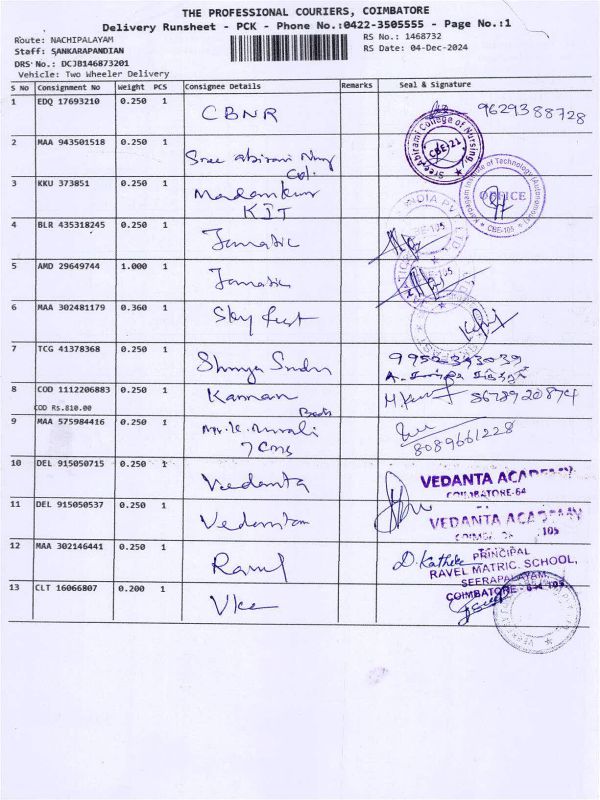 THE PROFESSIONAL COURIERS, COIMBATORE
Delivery Runsheet - PCK - Phone No.:0422-3505555 - Page No.:1
Route: NACHIPALAYAM
RS No.: 1468732
Staff: SANKARAPANDIAN
RS Date: 04-Dec-2024
DRS No.: DCJB146873201
Vehicle: Two Wheeler Delivery
S No Consignment No Weight PCS Consignee Details Remarks Seal & Signature
1 EDQ 17693210 0.250 1 CBNR 9629388728
2 MAA 943501518 0.250 1 Sree abirami Nng Col. Sree Abirami College of Nursing CBE-21
3 KKU 373851 0.250 1 Madankumar KIT Karpagam Institute of Technology (Autonomous) OFFICE CBE-105
4 BLR 435318245 0.250 1 Jumatic INDIA CBE-105
5 AMD 29649744 1.000 1 Jumatic
6 MAA 302481179 0.360 1 Sky fest
7 TCG 41378368 0.250 1 9952343039
8 COD 1112206883 0.250 1 Kannan
COD Rs.810.00
9 MAA 575984416 0.250 1 Mr. K. Murali 8089661228
10 DEL 915050715 0.250 1 Vedanta VEDANTA ACADEMY
COIMBATORE-64
11 DEL 915050537 0.250 1 VEDANTA ACADEMY
105
12 MAA 302146441 0.250 1 Ravel PRINCIPAL
RAVEL MATRIC. SCHOOL,
SEERAPALAYAM,
COIMBATORE - 641 105
13 CLT 16066807 0.200 1